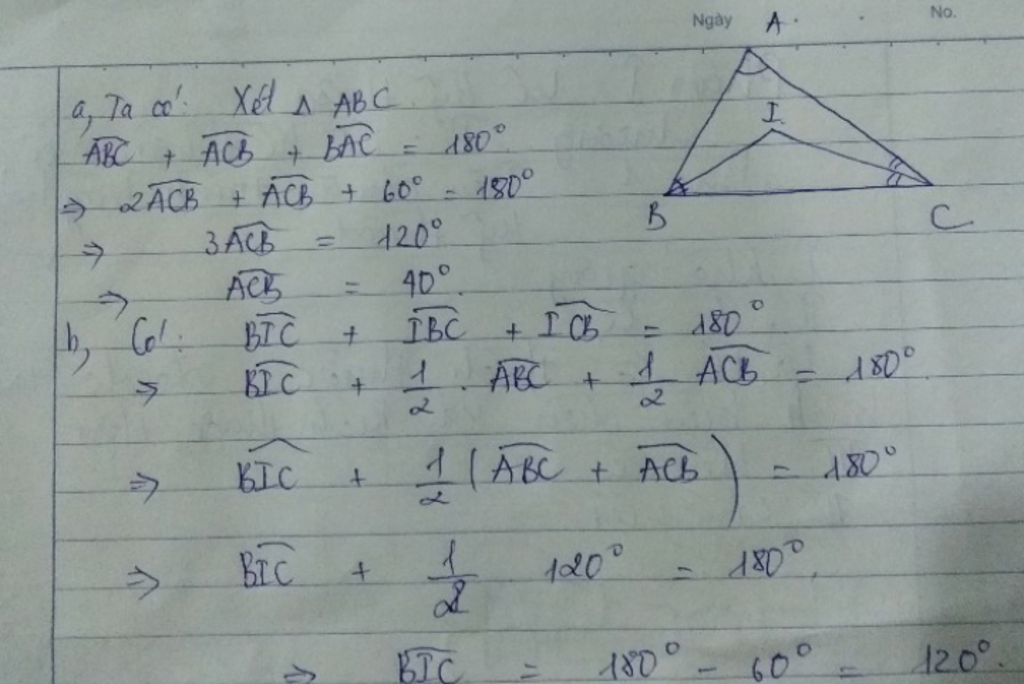 Ngày
No.
A
I
B
C
a, Ta có: Xét Δ ABC
$\widehat{ABC} + \widehat{ACB} + \widehat{BAC} = 180^\circ$
$\Rightarrow 2\widehat{ACB} + \widehat{ACB} + 60^\circ = 180^\circ$
$\Rightarrow 3\widehat{ACB} = 120^\circ$
$\Rightarrow \widehat{ACB} = 40^\circ.$
b, Có: $\widehat{BIC} + \widehat{IBC} + \widehat{ICB} = 180^\circ$
$\Rightarrow \widehat{BIC} + \frac{1}{2} . \widehat{ABC} + \frac{1}{2} \widehat{ACB} = 180^\circ.$
$\Rightarrow \widehat{BIC} + \frac{1}{2} ( \widehat{ABC} + \widehat{ACB} ) = 180^\circ$
$\Rightarrow \widehat{BIC} + \frac{1}{2} 120^\circ = 180^\circ.$
$\Rightarrow \widehat{BIC} = 180^\circ - 60^\circ = 120^\circ.$